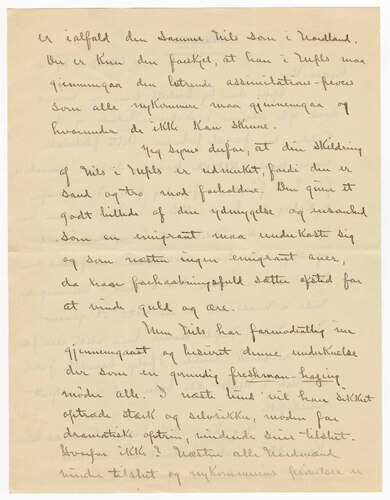 er ialfald den samme Nils som i Nordland.
Der er kun den forskjel, at han i Mpls maa
gjennemgaa den lutrende assimilations-proces
som alle nykommere maa gjennemgaa og
hvorunder de ikke kan skinne.
Jeg synes derfor, at din skildring
af Nils i Mpls er udmerket, fordi den er
sand og tro mod forholdene. Den giver et
godt billede af den ydmygelse og ensomhed
som en emigrant maa underkaste sig
og som næsten ingen emigrant aner,
da han forhaabningsfuld sætter afsted for
at vinde guld og ære.
Men Nils har formodentlig nu
gjennemgaaet og beseiret denne underkuelse
der som en grundig freshman-hazing
møder alle. I næste bind vil han sikkert
optræde stærk og selvsikker, moden for
dramatiske optrin, vindende seier tilslut.
Hvorfor ikke? Næsten alle Nordmænd
vinder tilslut og nykommerens er